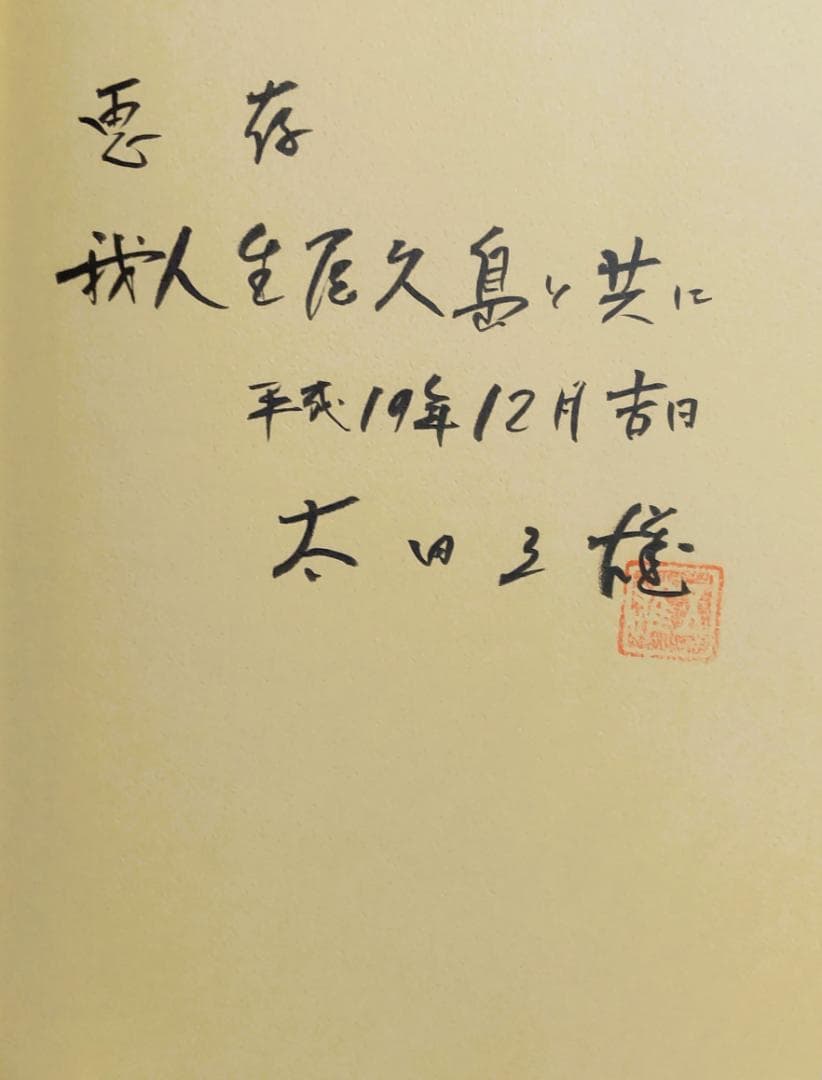 恵存
我人生屋久島と共に
平成19年12月吉日
太田五雄